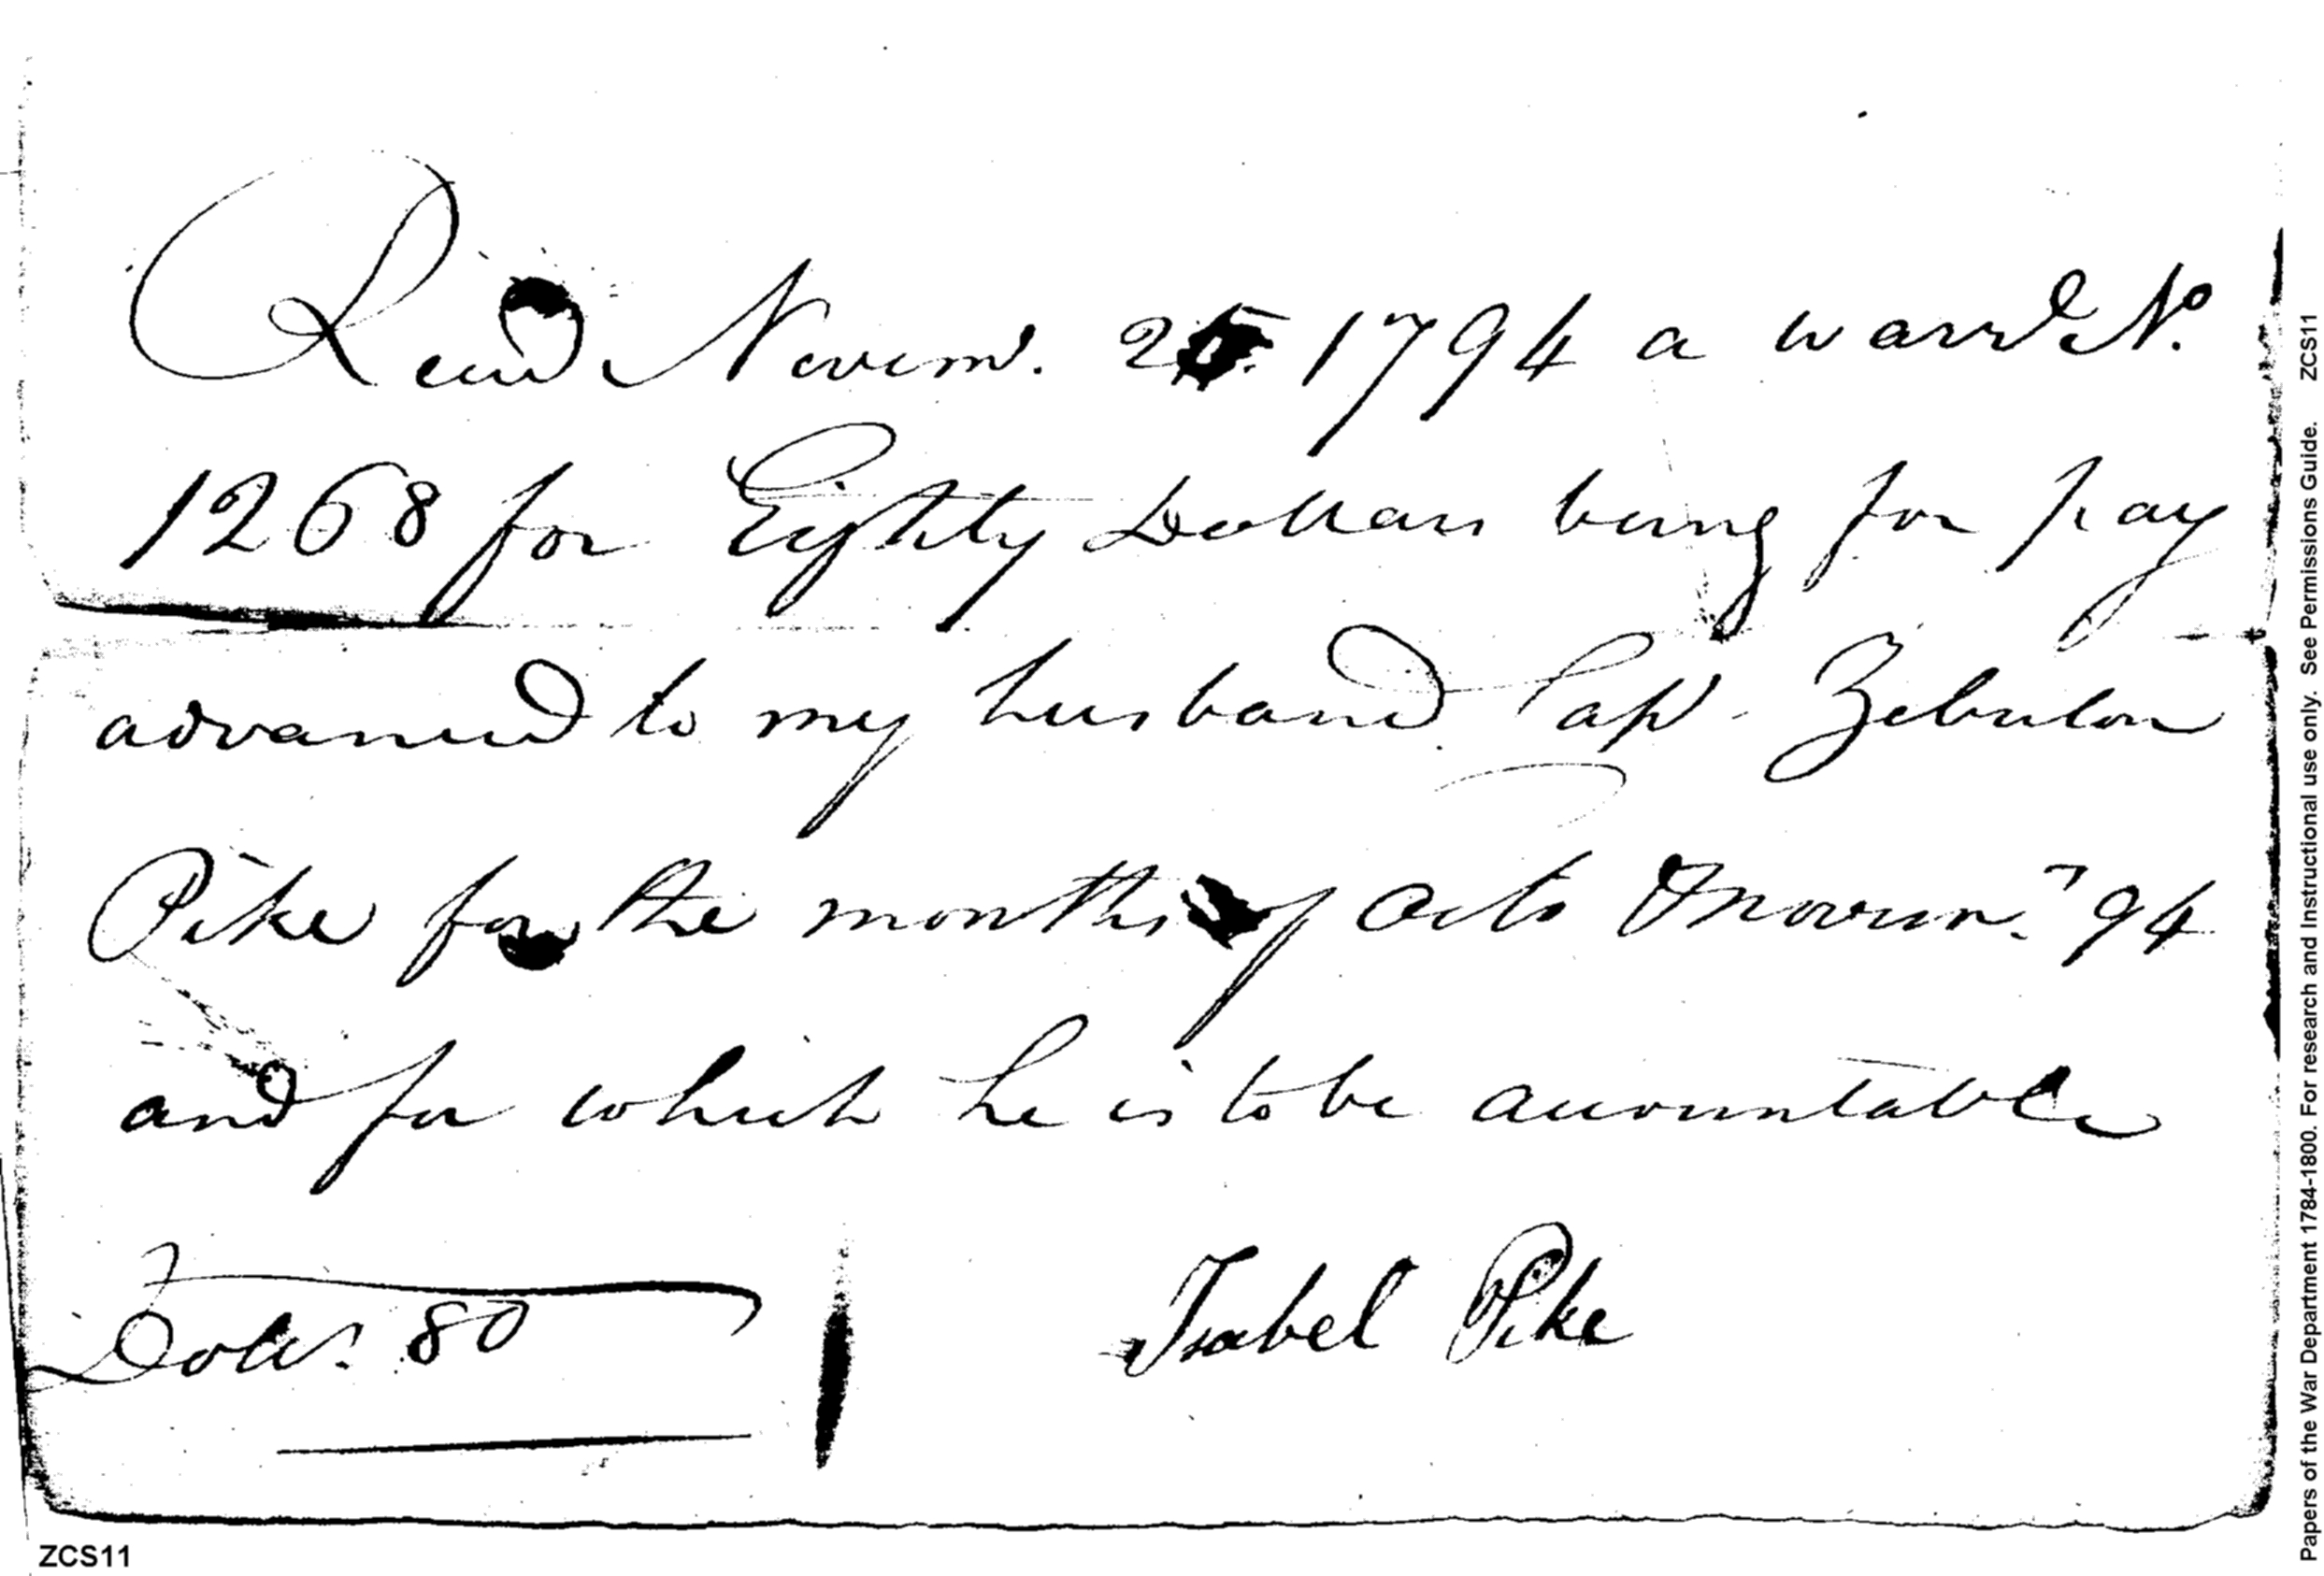 Recd Novemr. 25. 1794 a warrt No.
1268 for Eighty Dollars being for pay
advanced to my husband Capt. Zebulon
Pike for the months of Octo & Novem. 94
and for which he is to be accountable
Dolls. 80
Isabel Pike
ZCS11
Papers of the War Department 1784-1800. For research and Instructional use only. See Permissions Guide. ZCS11